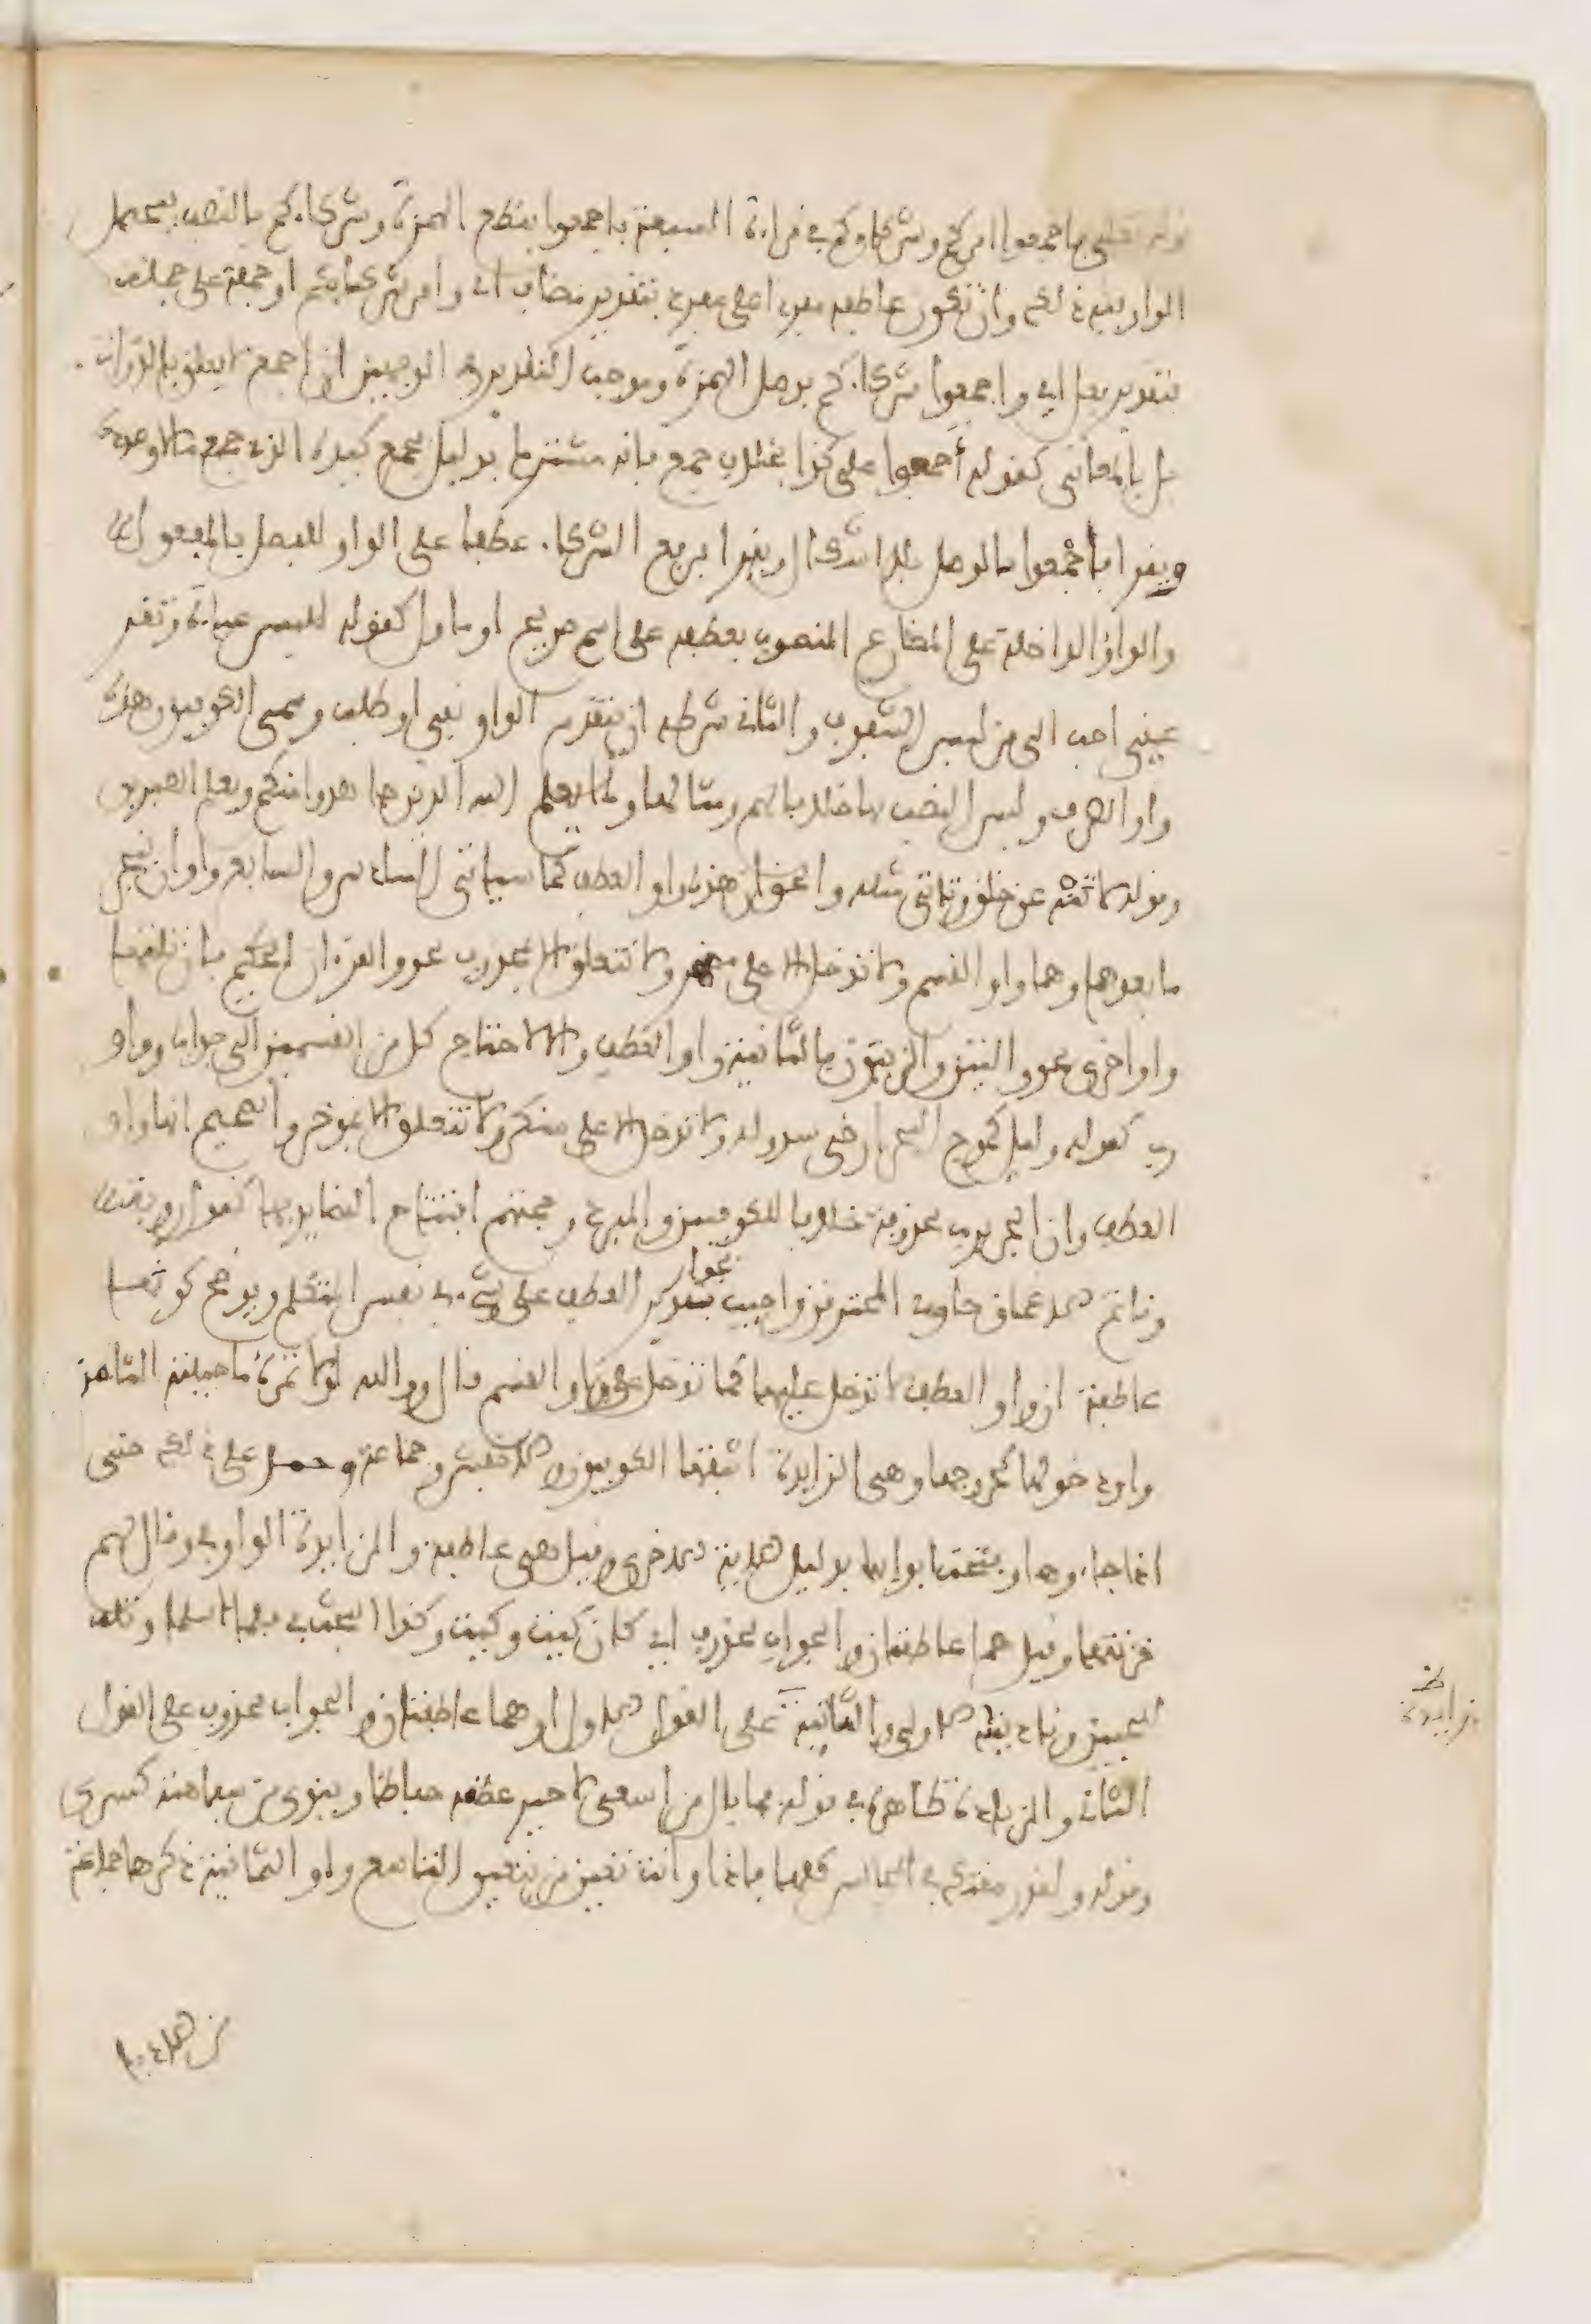 قوله تعلى فاجمعوا امركم وشركاءكم في قراءة السبعة فاجمعوا بقطع الهمزة وشركاءكم بالنصب فتحتمل
الواو فيه ذلك وان تكون عاطفة مفردا على مفرد بتقدير مضاف اي وامر شركائكم او جملة على جملة
بتقدير فعل اي واجمعوا شركاءكم بوصل الهمزة وموجب التقدير في الوجهين ان اجمع لا يتعلق بالذوات
بل بالمعاني كقولك أجمعوا على كذا بخلاف جمع فانه مشترك بدليل فجمع كيده الذي جمع مالا وعدده
ويقرا فاجمعوا بالوصل فلا اشكال ويقرا برفع الشركاء عطفا على الواو للفصل بالمفعول
والواو الداخلة على المضارع المنصوب بعطفه على اسم صريح او ماول كقوله للبس عباءة وتقر
عيني احب الي من لبس الشفوف والثاني شرطه ان يتقدم الواو نفي او طلب وسمى الكوفيون هذه
واو الصرف وليس النصب بها خلافا لهم ومثالها ولما يعلم الله الذين جاهدوا منكم ويعلم الصبرين
وقوله لا تنه عن خلق وتاتي مثله والحق ان هذه واو العطف كما سياتي السادس والسابع واوان ينجر
ما بعدهما وهما واو القسم ولا تدخل الا على مظهر ولا تتعلق الا بمحذوف نحو والقرءان الحكيم فان تلتها
واو اخرى نحو والتين والزيتون فالثانية واو العطف والا لاحتاج كل من القسمين الى جواب وواو
رب كقوله وليل كموج البحر ارخى سدوله ولا تدخل الا على منكر ولا تتعلق الا بموخر والصحيح انها واو
العطف وان الجر برب محذوفة خلافا للكوفيين والمبرد وحجتهم افتتاح القصايد بها كقول روبة
وقاتم الاعماق خاوي المخترق واجيب بتقدير العطف على شيء في نفس المتكلم ويوضح كونها
بجواز
عاطفة ان واو العطف لا تدخل عليها كما تدخل على واو القسم قال ووالله لولا تمره ما حببته الثامن
واو دخولها كخروجها وهي الزايدة اثبتها الكوفيون والاخفش وجماعة وحمل على ذلك حتى
اذا جاءوها وفتحت ابوابها بدليل الاية الاخرى وقيل هي عاطفة والزايدة الواو في وقال لهم
خزنتها وقيل هما عاطفتان والجواب محذوف اي كان كيت وكيت وكذا البحث في فلما اسلما وتله
للجبين وناديناه الاولى او الثانية على القول الاول او هما عاطفتان والجواب محذوف على القول
الثاني والزيادة ظاهرة في قوله فما بال من اسعى لاجبر عظمه حفاظا وينوي من سفاهته كسري
وقوله ولقد رمقتك في المجالس كلها فاذا وانت تعين من يبغيني التاسع واو الثمانية ذكرها جماعة
زايدة
من الادباء